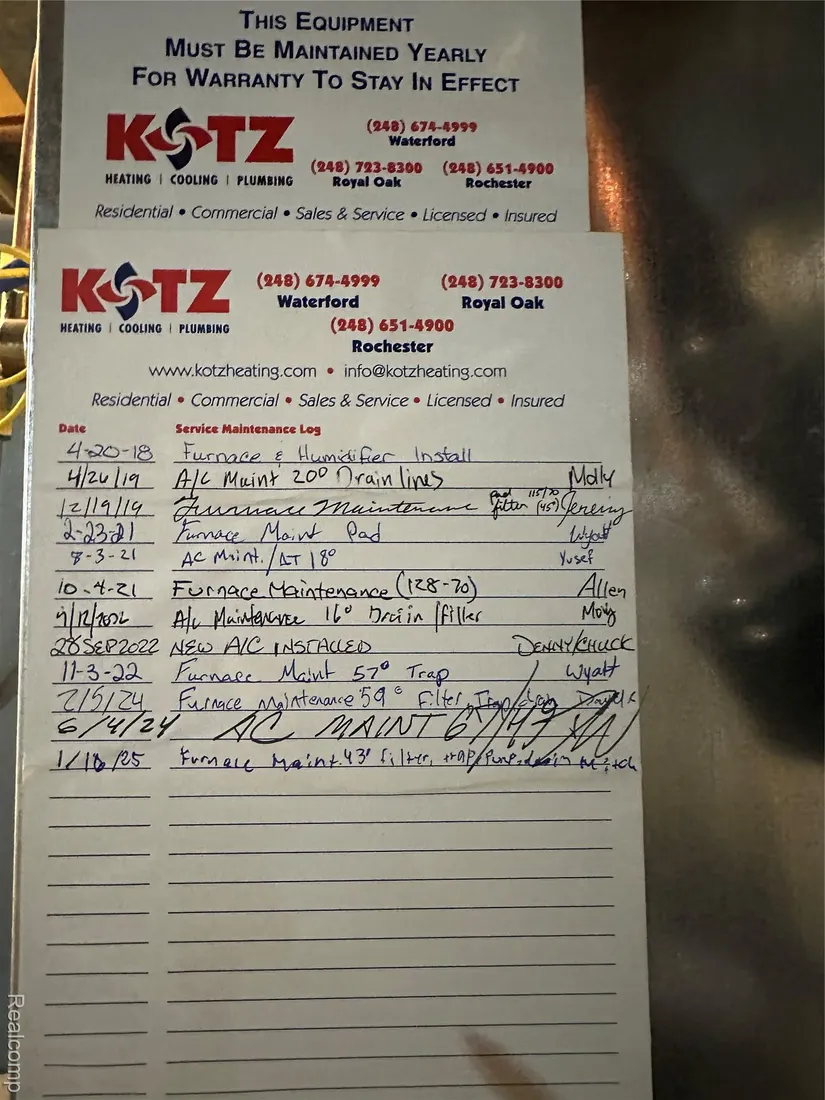 THIS EQUIPMENT
MUST BE MAINTAINED YEARLY
FOR WARRANTY TO STAY IN EFFECT
KOTZ
HEATING | COOLING | PLUMBING
(248) 674-4999
Waterford
(248) 723-8300 (248) 651-4900
Royal Oak Rochester
Residential • Commercial • Sales & Service • Licensed • Insured
KOTZ
HEATING | COOLING | PLUMBING
(248) 674-4999 (248) 723-8300
Waterford Royal Oak
(248) 651-4900
Rochester
www.kotzheating.com • info@kotzheating.com
Residential • Commercial • Sales & Service • Licensed • Insured
Date Service Maintenance Log
4-20-18 Furnace & Humidifier Install
4/26/19 A/C Maint 20° Drain lines Molly
12/19/19 Furnace Maintenance pad filter 115/70 (45°) Jeremy
2-23-21 Furnace Maint Pad Wyatt
8-3-21 AC Maint./ΔT 18° Yusef
10-4-21 Furnace Maintenance (128-70) Allen
A/C Maintenance 16° Drain/filter
28 SEP 2022 NEW A/C INSTALLED DENNY/CHUCK
11-3-22 Furnace Maint 57° Trap Wyatt
2/5/24 Furnace Maintenance 59° Filter, Trap
6/4/24 AC MAINT
1/18/25 Furnace Maint. 43° filter, trap, drain Mitch
Realcomp